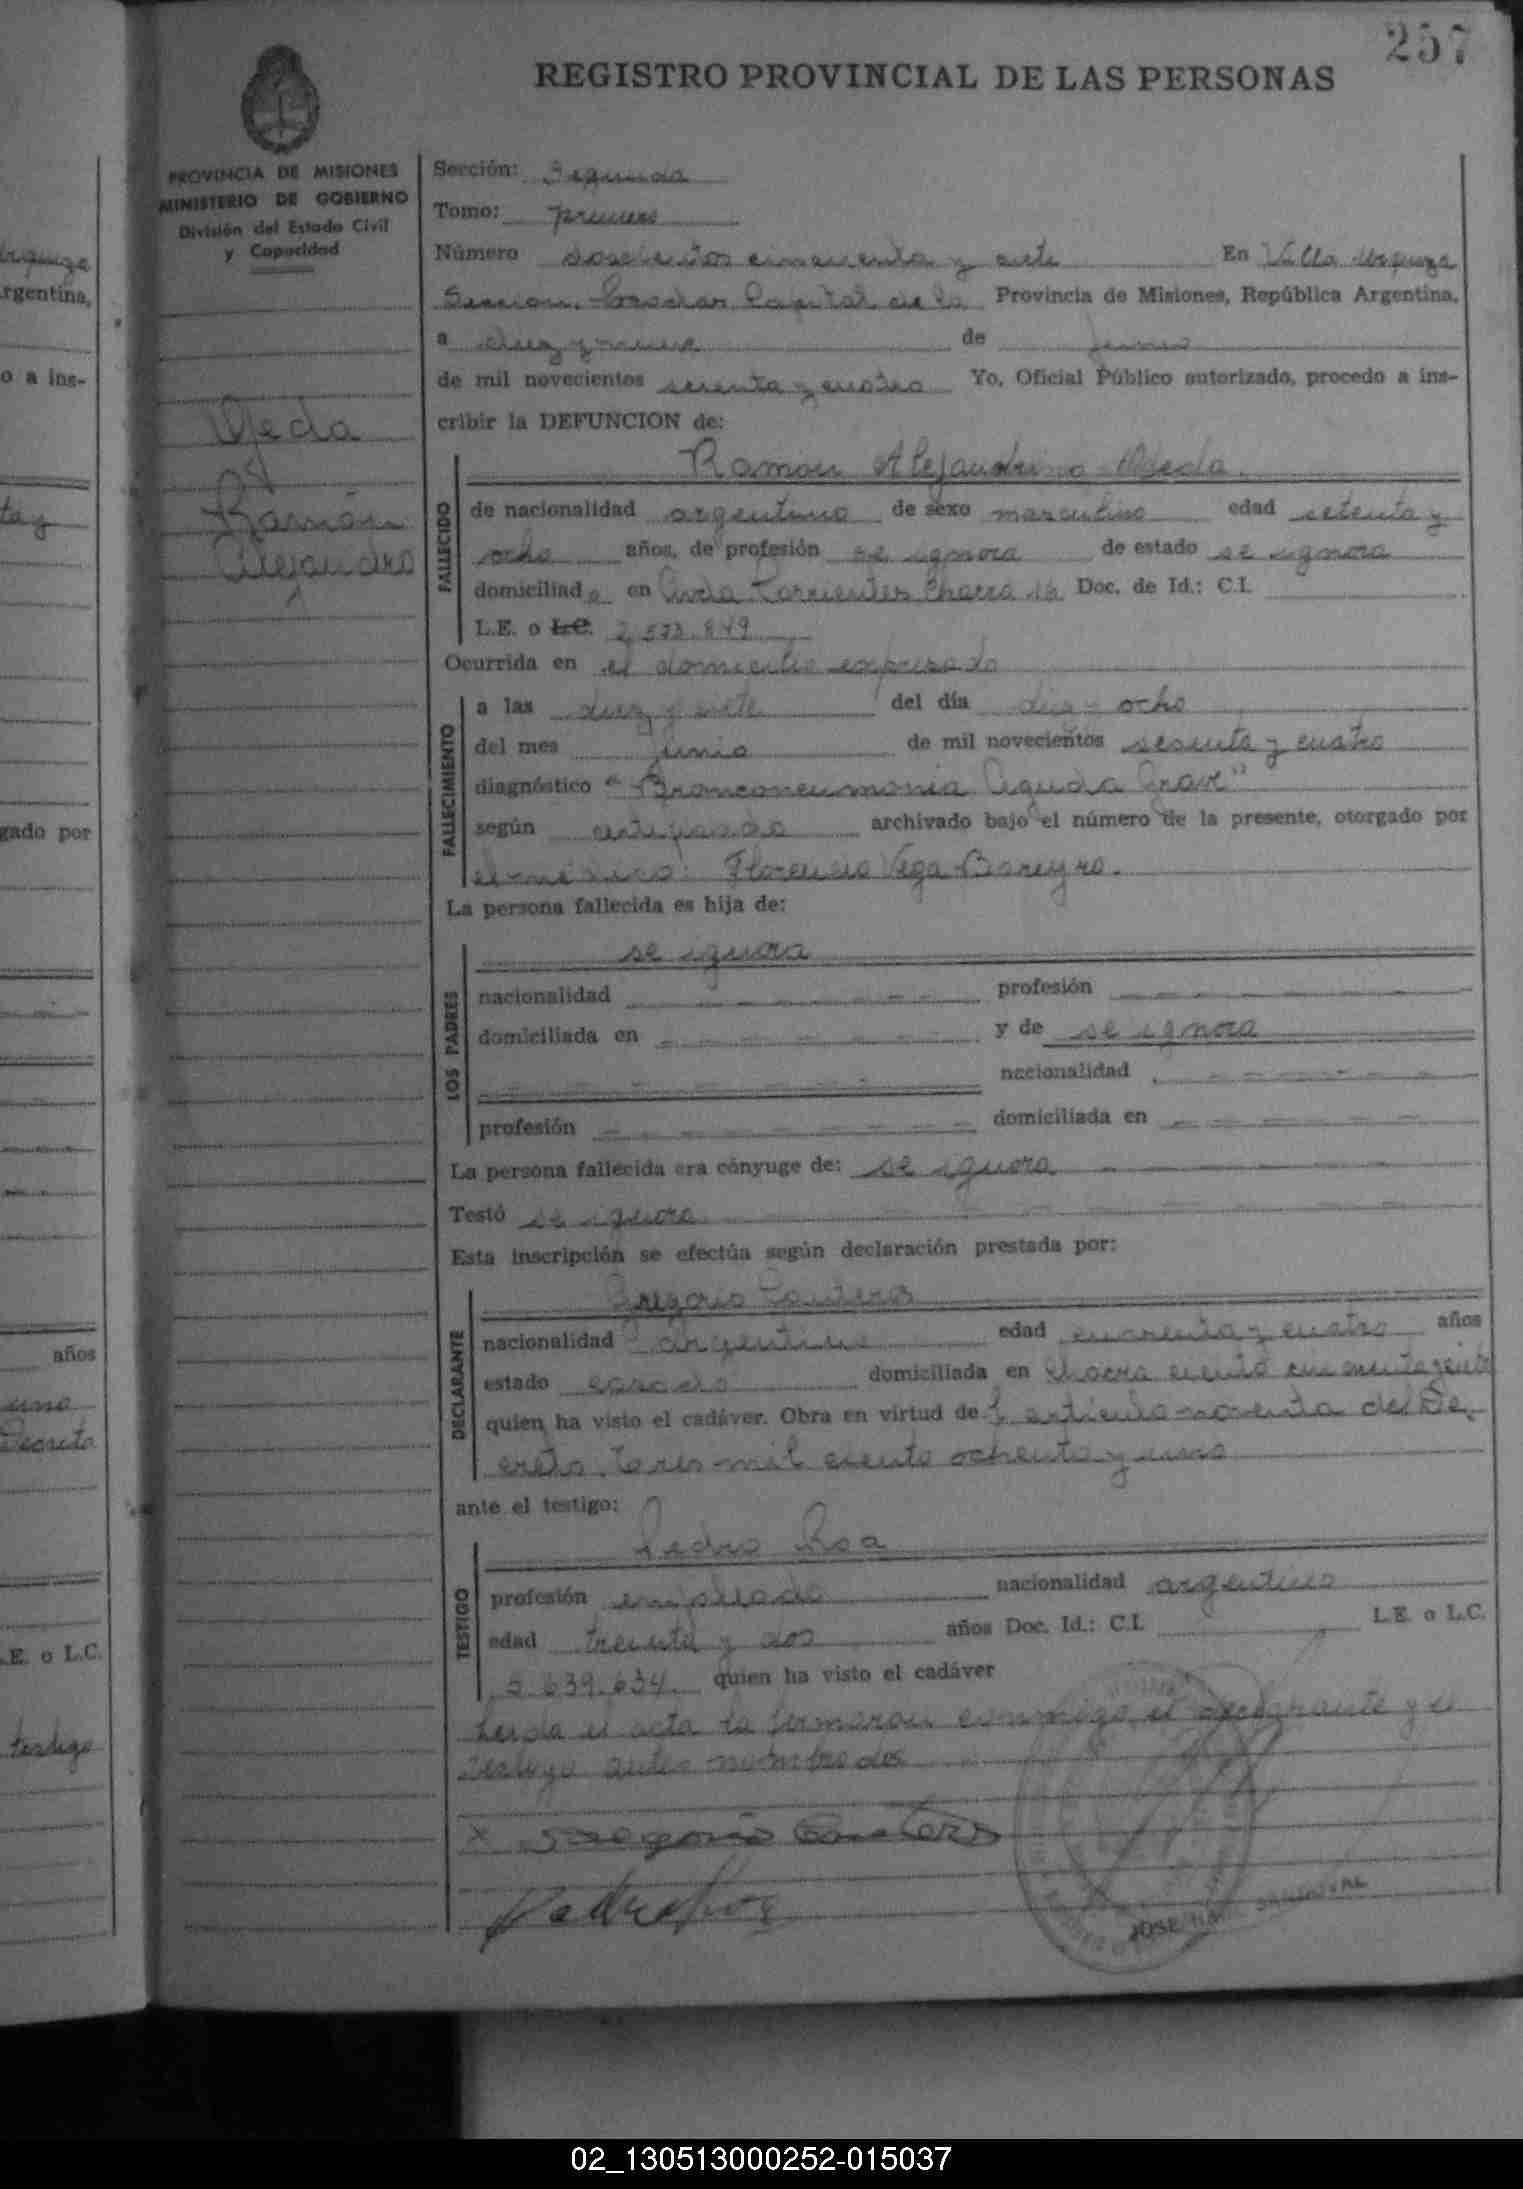 257
REGISTRO PROVINCIAL DE LAS PERSONAS
PROVINCIA DE MISIONES
MINISTERIO DE GOBIERNO
División del Estado Civil
y Capacidad
Ojeda
Ramón
Alejandro
Sección: Segunda
Tomo: primero
Número doscientos cincuenta y siete En Villa Urquiza
Seccion Capital de la Provincia de Misiones, República Argentina,
a diez y nueve de junio
de mil novecientos sesenta y cuatro Yo, Oficial Público autorizado, procedo a ins-
cribir la DEFUNCION de:
FALLECIDO
Ramon Alejandrino Ojeda
de nacionalidad argentino de sexo masculino edad setenta y
ocho años, de profesión se ignora de estado se ignora
domiciliado en Avda Corrientes Chacra 16 Doc. de Id.: C.I.
L.E. o L.C. 2.573.849
Ocurrida en el domicilio expresado
FALLECIMIENTO
a las diez y siete del día diez y ocho
del mes junio de mil novecientos sesenta y cuatro
diagnóstico "Bronconeumonia Aguda Grave"
según certificado archivado bajo el número de la presente, otorgado por
el médico: Florencio Vega Bareyro.
La persona fallecida es hija de:
LOS PADRES
se ignora
nacionalidad profesión
domiciliada en y de se ignora
nacionalidad
profesión domiciliada en
La persona fallecida era cónyuge de: se ignora
Testó se ignora
Esta inscripción se efectúa según declaración prestada por:
DECLARANTE
Gregorio Canteros
nacionalidad argentino edad cuarenta y cuatro años
estado casado domiciliada en Chacra ciento cincuenta y
quien ha visto el cadáver. Obra en virtud del articulo noventa del De-
creto tres mil ciento ochenta y uno
ante el testigo:
TESTIGO
Pedro Roa
profesión empleado nacionalidad argentino
edad treinta y dos años Doc. Id.: C.I. L.E. o L.C.
5.639.634 quien ha visto el cadáver
Leida el acta la firmaron conmigo el declarante y el
testigo antes nombrados
x Gregorio Canteros
Pedro Roa
JOSE SANDOVAL
rquiza
rgentina,
o a ins-
ta y
gado por
años
uno
Decreto
.E. o L.C.
testigo
02_130513000252-015037